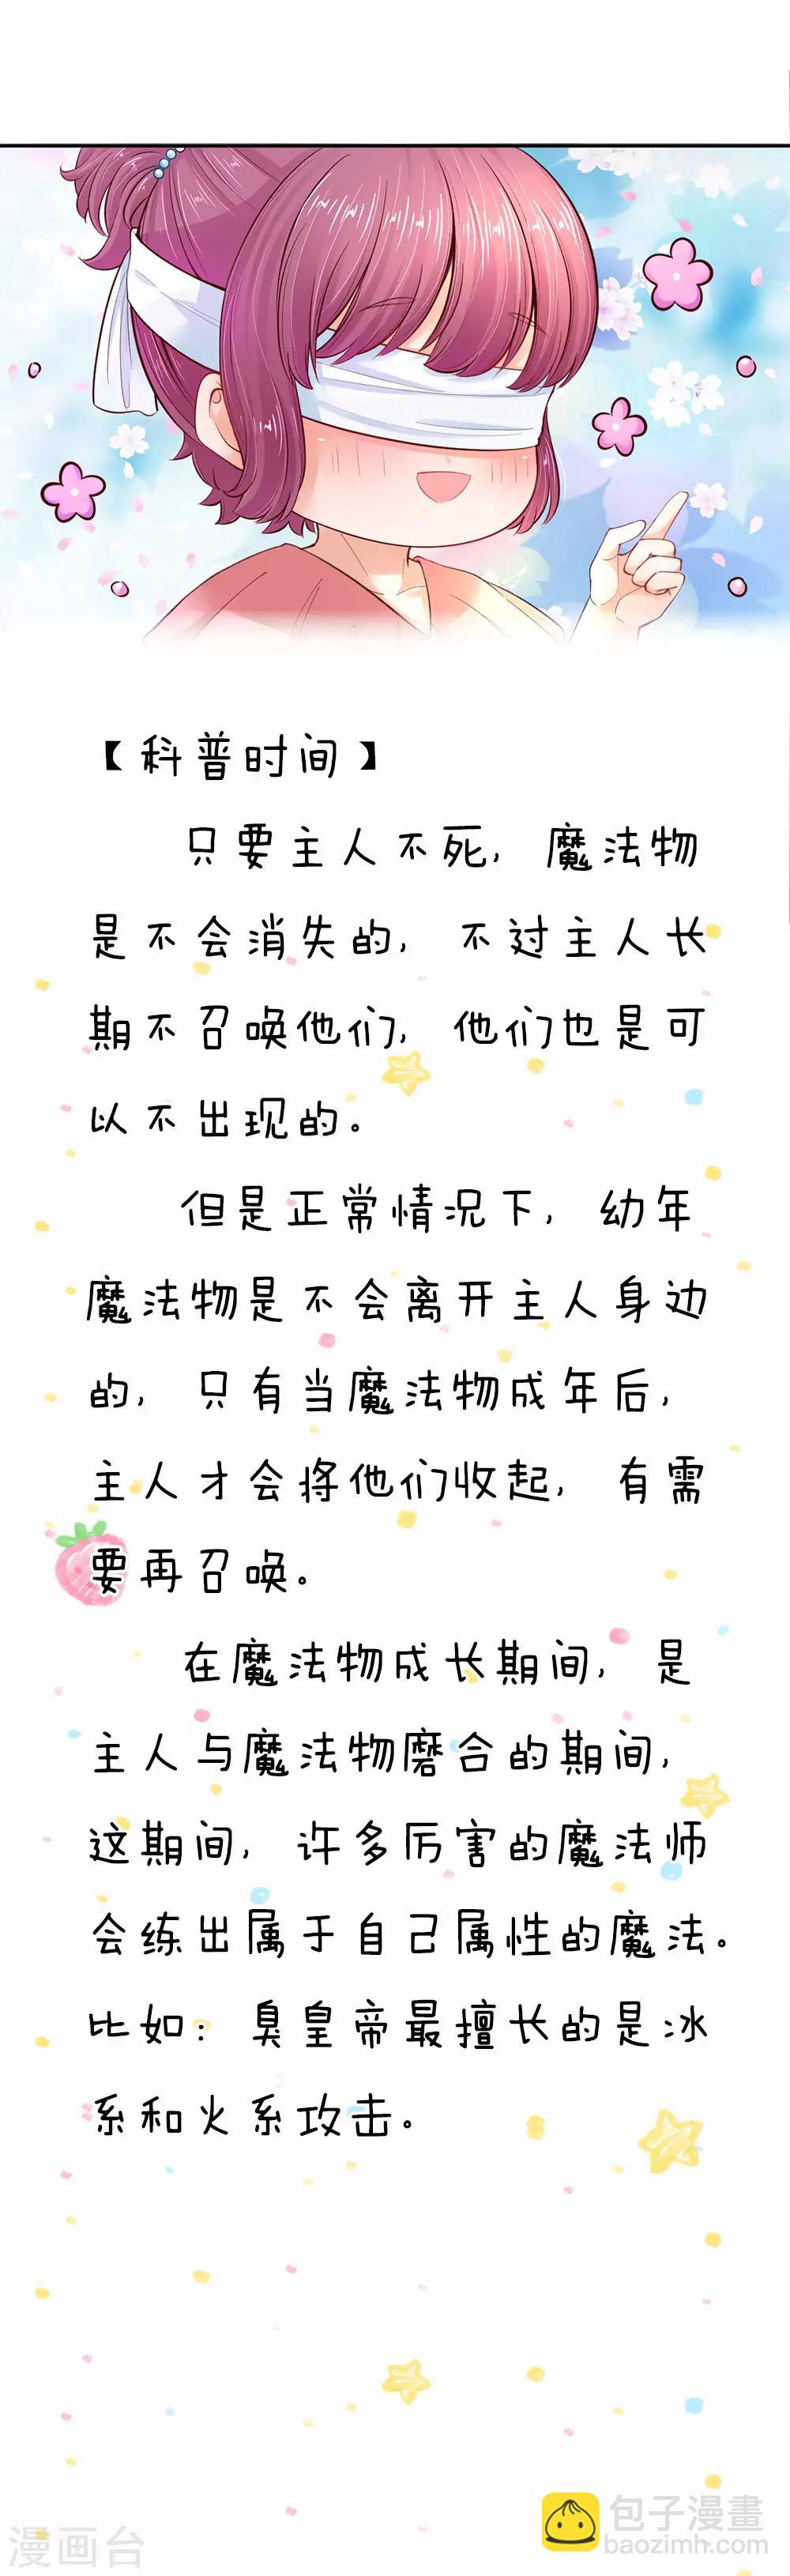 【科普时间】
只要主人不死，魔法物
是不会消失的，不过主人长
期不召唤他们，他们也是可
以不出现的。
但是正常情况下，幼年
魔法物是不会离开主人身边
的，只有当魔法物成年后，
主人才会将他们收起，有需
要再召唤。
在魔法物成长期间，是
主人与魔法物磨合的期间，
这期间，许多厉害的魔法师
会练出属于自己属性的魔法。
比如：臭皇帝最擅长的是冰
系和火系攻击。
漫画台
包子漫畫
baozimh.com